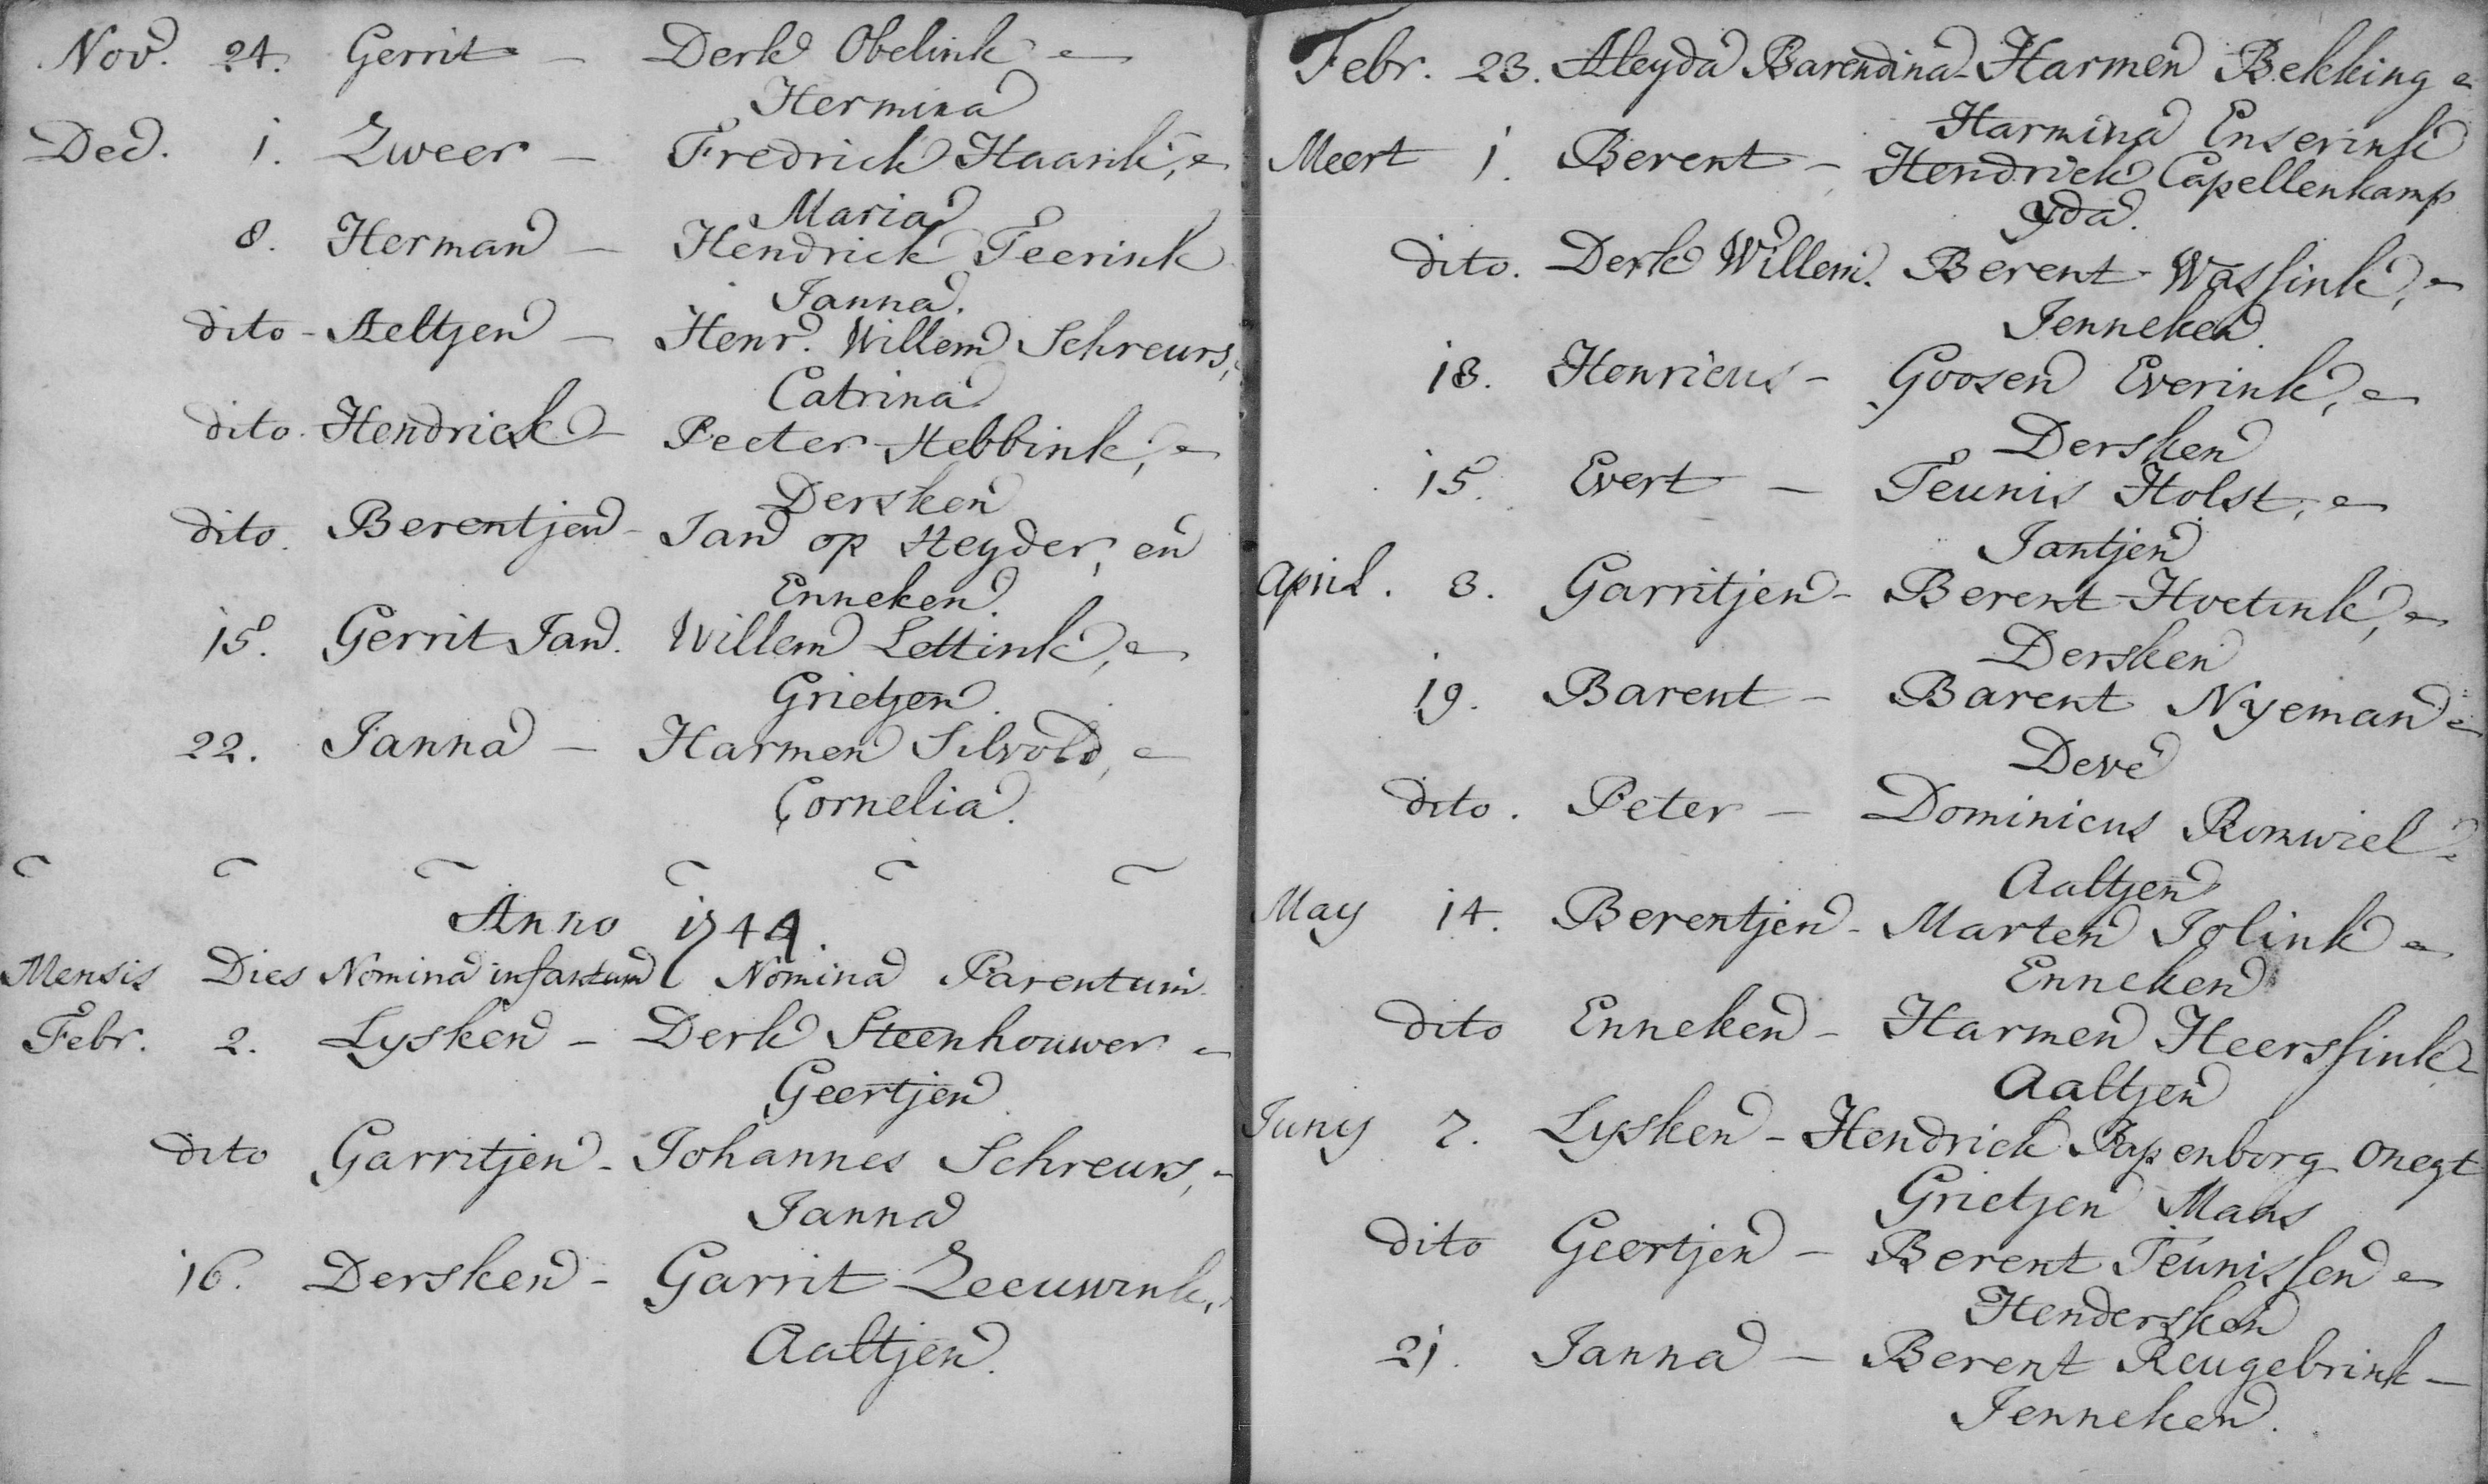 Nov. 24. Gerrit - Derk Obelink e
Hermina
Dec. 1. Zweer - Fredrick Haank, e
Maria
8. Herman - Hendrick Teerink
Janna.
dito - Aeltjen - Henr. Willem Schreurs,
Catrina
dito. Hendrick - Peeter Hebbink, e
Dersken
dito. Berentjen - Jan op Heyder, en
Enneken.
15. Gerrit Jan. Willem Lettink, e
Grietjen.
22. Janna - Harmen Silvold, e
Cornelia.
Anno 1744.
Mensis Dies Nomina infantum Nomina Parentum
Febr. 2. Lysken - Derk Steenhouwer e
Geertjen
dito Garritjen - Johannes Schreurs, e
Janna
16. Dersken - Garrit Leeuwink,
Aaltjen.
Febr. 23. Aleyda Barendina - Harmen Bekking e
Harmina Enserink
Meert 1. Berent - Hendrick Capellenkamp
Yda.
dito. Derk Willem. Berent Wassink, e
Jenneken.
18. Henricus - Goosen Everink, e
Dersken
15. Evert - Teunis Holst, e
Jantjen
April. 3. Garritjen - Berent Hoetink, e
Dersken
19. Barent - Barent Nyeman e
Deve
dito. Peter - Dominicus Romwiel e
Aaltjen
May 14. Berentjen - Marten Jolink e
Enneken
dito Enneken - Harmen Heerssink e
Aaltjen
Juny 7. Lysken - Hendrick Papenborg onegt
Grietjen Mans
dito Geertjen - Berent Teunissen e
Hendersken
21. Janna - Berent Reugebrink -
Jenneken.